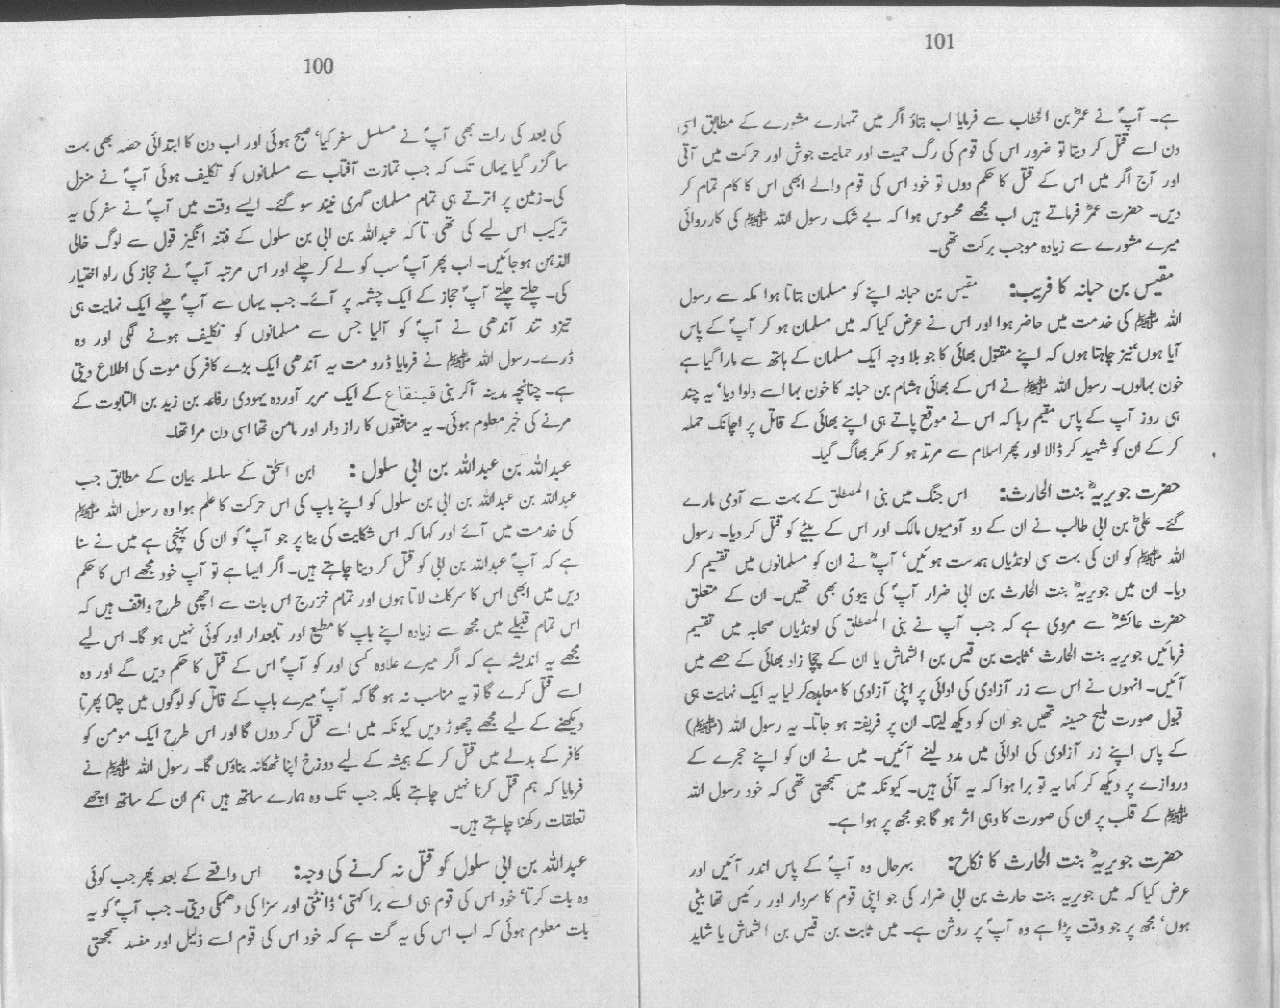 100
کی بعد کی رات بھی آپؐ نے مسلسل سفر کیا‘ صبح ہوئی اور اب دن کا ابتدائی حصہ بھی بہت
سا گزر گیا یہاں تک کہ جب تمازت آفتاب سے مسلمانوں کو تکلیف ہوئی آپؐ نے منزل
کی۔ زمین پر اترتے ہی تمام مسلمان گہری نیند سو گئے۔ ایسے وقت میں آپؐ نے سفر کی یہ
ترکیب اس لیے کی تھی تاکہ عبداللہ بن ابی بن سلول کے فتنہ انگیز قول سے لوگ خالی
الذہن ہوجائیں۔ اب پھر آپؐ سب کو لے کر چلے اور اس مرتبہ آپؐ نے حجاز کی راہ اختیار
کی۔ چلتے چلتے آپؐ حجاز کے ایک چشمہ پر آئے۔ جب یہاں سے آپؐ چلے ایک نہایت ہی
تیزو تند آندھی نے آپؐ کو آلیا جس سے مسلمانوں کو تکلیف ہونے لگی اور وہ
ڈرے۔ رسول اللہ ﷺ نے فرمایا ڈرو مت یہ آندھی ایک بڑے کافر کی موت کی اطلاع دیتی
ہے۔ چنانچہ مدینہ آکر بنی قینقاع کے ایک سربر آوردہ یہودی رفاعہ بن زید بن التابوت کے
مرنے کی خبر معلوم ہوئی۔ یہ منافقوں کا راز دار اور مامن تھا اسی دن مرا تھا۔
عبداللہ بن عبداللہ بن ابی سلول : ابن اسحٰق کے سلسلہ بیان کے مطابق جب
عبداللہ بن عبداللہ بن ابی بن سلول کو اپنے باپ کی اس حرکت کا علم ہوا وہ رسول اللہ ﷺ
کی خدمت میں آئے اور کہا کہ اس شکایت کی بنا پر جو آپؐ کو ان کی پہنچی ہے میں نے سنا
ہے کہ آپؐ عبداللہ بن ابی کو قتل کر دینا چاہتے ہیں۔ اگر ایسا ہے تو آپ خود مجھے اس کا حکم
دیں میں ابھی اس کا سر کاٹ لاتا ہوں اور تمام خزرج اس بات سے اچھی طرح واقف ہیں کہ
اس تمام قبیلے میں مجھ سے زیادہ اپنے باپ کا مطیع اور تابعدار اور کوئی نہیں ہو گا۔ اس لیے
مجھے یہ اندیشہ ہے کہ اگر میرے علاوہ کسی اور کو آپؐ اس کے قتل کا حکم دیں گے اور وہ
اسے قتل کرے گا تو یہ مناسب نہ ہو گا کہ آپؐ میرے باپ کے قاتل کو لوگوں میں چلتا پھرتا
دیکھنے کے لیے مجھے چھوڑ دیں کیونکہ میں اسے قتل کر دوں گا اور اس طرح ایک مومن کو
کافر کے بدلے میں قتل کر کے ہمیشہ کے لیے دوزخ اپنا ٹھکانہ بناؤں گا۔ رسول اللہ ﷺ نے
فرمایا کہ ہم قتل کرنا نہیں چاہتے بلکہ جب تک وہ ہمارے ساتھ ہیں ہم ان کے ساتھ اچھے
تعلقات رکھنا چاہتے ہیں۔
عبداللہ بن ابی سلول کو قتل نہ کرنے کی وجہ: اس واقعے کے بعد پھر جب کوئی
وہ بات کرتا‘ خود اس کی قوم ہی اسے برا کہتی‘ ڈانٹتی اور سزا کی دھمکی دیتی۔ جب آپؐ کو یہ
بات معلوم ہوئی کہ اب اس کی یہ گت ہے کہ خود اس کی قوم اسے ذلیل اور مفسد سمجھتی
101
ہے۔ آپؐ نے عمرؓ بن الخطاب سے فرمایا اب بتاؤ اگر میں تمہارے مشورے کے مطابق اسی
دن اسے قتل کر دیتا تو ضرور اس کی قوم کی رگ حمیت اور حمایت جوش اور حرکت میں آتی
اور آج اگر میں اس کے قتل کا حکم دوں تو خود اس کی قوم والے ابھی اس کا کام تمام کر
دیں۔ حضرت عمرؓ فرماتے ہیں اب مجھے محسوس ہوا کہ بے شک رسول اللہ ﷺ کی کارروائی
میرے مشورے سے زیادہ موجب برکت تھی۔
مقیس بن حبانہ کا فریب: مقیس بن حبانہ اپنے کو مسلمان بتاتا ہوا مکہ سے رسول
اللہ ﷺ کی خدمت میں حاضر ہوا اور اس نے عرض کیا کہ میں مسلمان ہو کر آپؐ کے پاس
آیا ہوں‘ نیز چاہتا ہوں کہ اپنے مقتول بھائی کا جو بلا وجہ ایک مسلمان کے ہاتھ سے مارا گیا ہے
خون بہالوں۔ رسول اللہ ﷺ نے اس کے بھائی ہشام بن حبانہ کا خون بہا اسے دلوا دیا‘ یہ چند
ہی روز آپ کے پاس مقیم رہا کہ اس نے موقع پاتے ہی اپنے بھائی کے قاتل پر اچانک حملہ
کر کے ان کو شہید کر ڈالا اور پھر اسلام سے مرتد ہو کر مکر بھاگ گیا۔
حضرت جویریہؓ بنت الحارث: اس جنگ میں بنی المصطلق کے بہت سے آدمی مارے
گئے۔ علیؓ بن ابی طالب نے ان کے دو آدمیوں مالک اور اس کے بیٹے کو قتل کر دیا۔ رسول
اللہ ﷺ کو ان کی بہت سی لونڈیاں ہمدست ہوئیں‘ آپؐ نے ان کو مسلمانوں میں تقسیم کر
دیا۔ ان میں جویریہؓ بنت الحارث بن ابی ضرار آپؐ کی بیوی بھی تھیں۔ ان کے متعلق
حضرت عائشہؓ سے مروی ہے کہ جب آپ نے بنی المصطلق کی لونڈیاں صحابہ میں تقسیم
فرمائیں جویریہ بنت الحارث ‘ثابت بن قیس بن الشماش یا ان کے چچا زاد بھائی کے حصے میں
آئیں۔ انہوں نے اس سے زر آزادی کی ادائی پر اپنی آزادی کا معاہدہ کر لیا یہ ایک نہایت ہی
قبول صورت ملیح حسینہ تھیں جو ان کو دیکھ لیتا۔ ان پر فریفتہ ہو جاتا۔ یہ رسول اللہ (ﷺ)
کے پاس اپنے زر آزادی کی ادائی میں مدد لینے آئیں۔ میں نے ان کو اپنے حجرے کے
دروازے پر دیکھ کر کہا یہ تو برا ہوا کہ یہ آئی ہیں۔ کیونکہ میں سمجھتی تھی کہ خود رسول اللہ
ﷺ کے قلب پر ان کی صورت کا وہی اثر ہو گا جو مجھ پر ہوا ہے۔
حضرت جویریہؓ بنت الحارث کا نکاح: بہرحال وہ آپؐ کے پاس اندر آئیں اور
عرض کیا کہ میں جویریہ بنت حارث بن ابی ضرار کی جو اپنی قوم کا سردار اور رئیس تھا بیٹی
ہوں‘ مجھ پر جو وقت پڑا ہے وہ آپؐ پر روشن ہے۔ میں ثابت بن قیس بن الشماش یا شاید